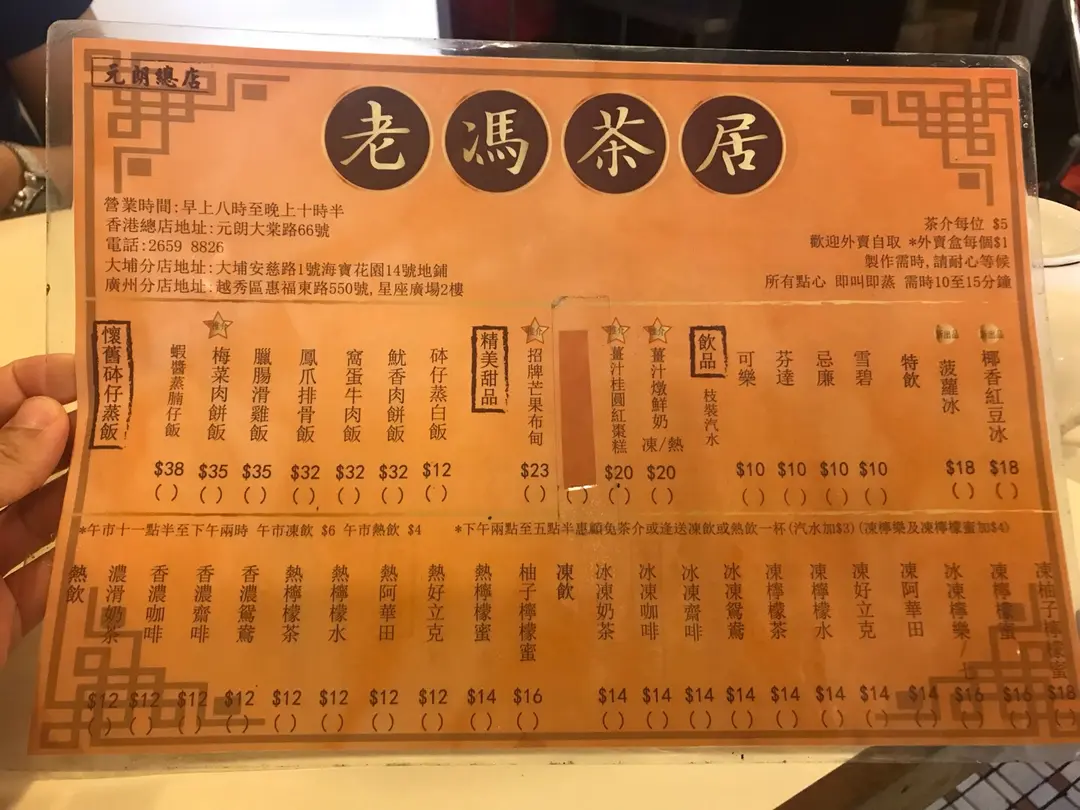 元朗總店
老馮茶居
營業時間:早上八時至晚上十時半
香港總店地址:元朗大棠路66號
電話:2659 8826
大埔分店地址:大埔安慈路1號海寶花園14號地鋪
廣州分店地址:越秀區惠福東路550號,星座廣場2樓
茶介每位 $5
歡迎外賣自取 *外賣盒每個$1
製作需時,請耐心等候
所有點心 即叫即蒸 需時10至15分鐘
懷舊砵仔蒸飯
蝦醬蒸腩仔飯 $38 ( )
梅菜肉餅飯 $35 ( )
臘腸滑雞飯 $35 ( )
鳳爪排骨飯 $32 ( )
窩蛋牛肉飯 $32 ( )
魷香肉餅飯 $32 ( )
砵仔蒸白飯 $12 ( )
精美甜品
招牌芒果布甸 $23 ( )
( )
薑汁桂圓紅棗糕 $20 ( )
薑汁燉鮮奶 凍/熱 $20 ( )
飲品
枝裝汽水
可樂 $10 ( )
芬達 $10 ( )
忌廉 $10 ( )
雪碧 $10 ( )
特飲
菠蘿冰 $18 ( )
椰香紅豆冰 $18 ( )
*午市十一點半至下午兩時 午市凍飲 $6 午市熱飲 $4
*下午兩點至五點半惠顧免茶介或逢送凍飲或熱飲一杯(汽水加$3)(凍檸樂及凍檸檬蜜加$4)
熱飲
濃滑奶茶 $12 ( )
香濃咖啡 $12 ( )
香濃齋啡 $12 ( )
香濃鴛鴦 $12 ( )
熱檸檬茶 $12 ( )
熱檸檬水 $12 ( )
熱阿華田 $12 ( )
熱好立克 $12 ( )
熱檸檬蜜 $14 ( )
柚子檸檬蜜 $16 ( )
凍飲
冰凍奶茶 $14 ( )
冰凍咖啡 $14 ( )
冰凍齋啡 $14 ( )
冰凍鴛鴦 $14 ( )
凍檸檬茶 $14 ( )
凍檸檬水 $14 ( )
凍好立克 $14 ( )
凍阿華田 $14 ( )
冰凍檸樂/七 $16 ( )
凍檸檬蜜 $16 ( )
凍柚子檸檬蜜 $18 ( )